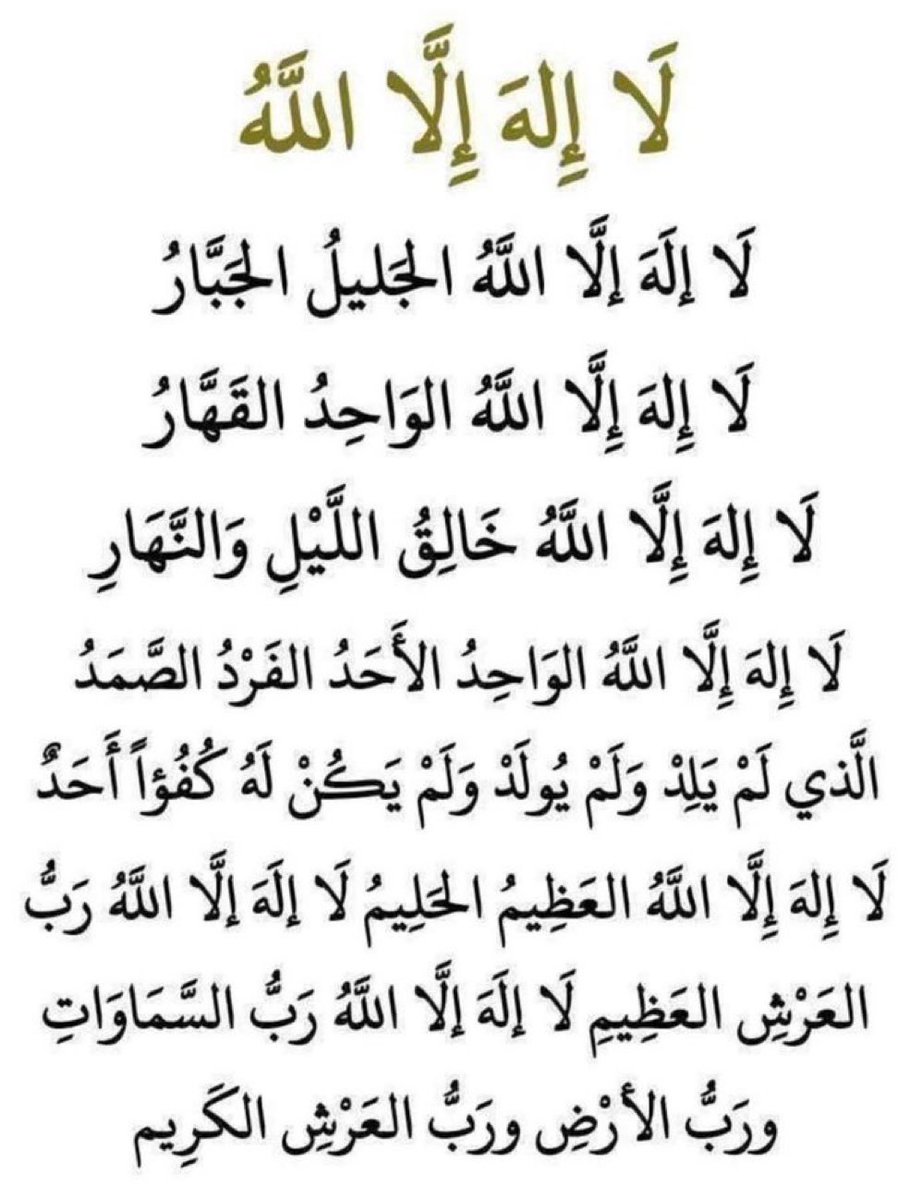 لَا إِلهَ إِلَّا اللَّهُ
لَا إلَهَ إلَّا اللَّهُ الجَليلُ الجَبَّارُ
لَا إِلهَ إِلَّا اللَّهُ الوَاحِدُ القَهَّارُ
لَا إِلهَ إِلَّا اللَّهُ خَالِقُ اللَّيْلِ وَالنَّهَارِ
لَا إِلهَ إِلَّا اللَّهُ الوَاحِدُ الأَحَدُ الفَرْدُ الصَّمَدُ
الَّذي لَمْ يَلِدْ وَلَمْ يُولَدْ وَلَمْ يَكُنْ لَهُ كُفُؤاً أَحَدٌ
لَا إِلهَ إِلَّا اللَّهُ العَظِيمُ الحَلِيمُ لَا إلَهَ إلَّا اللَّهُ رَبُّ
العَرْشِ العَظِيمِ لَا إلَهَ إلَّا اللَّهُ رَبُّ السَّمَاوَاتِ
ورَبُّ الأرْضِ ورَبُّ العَرْشِ الكَرِيم